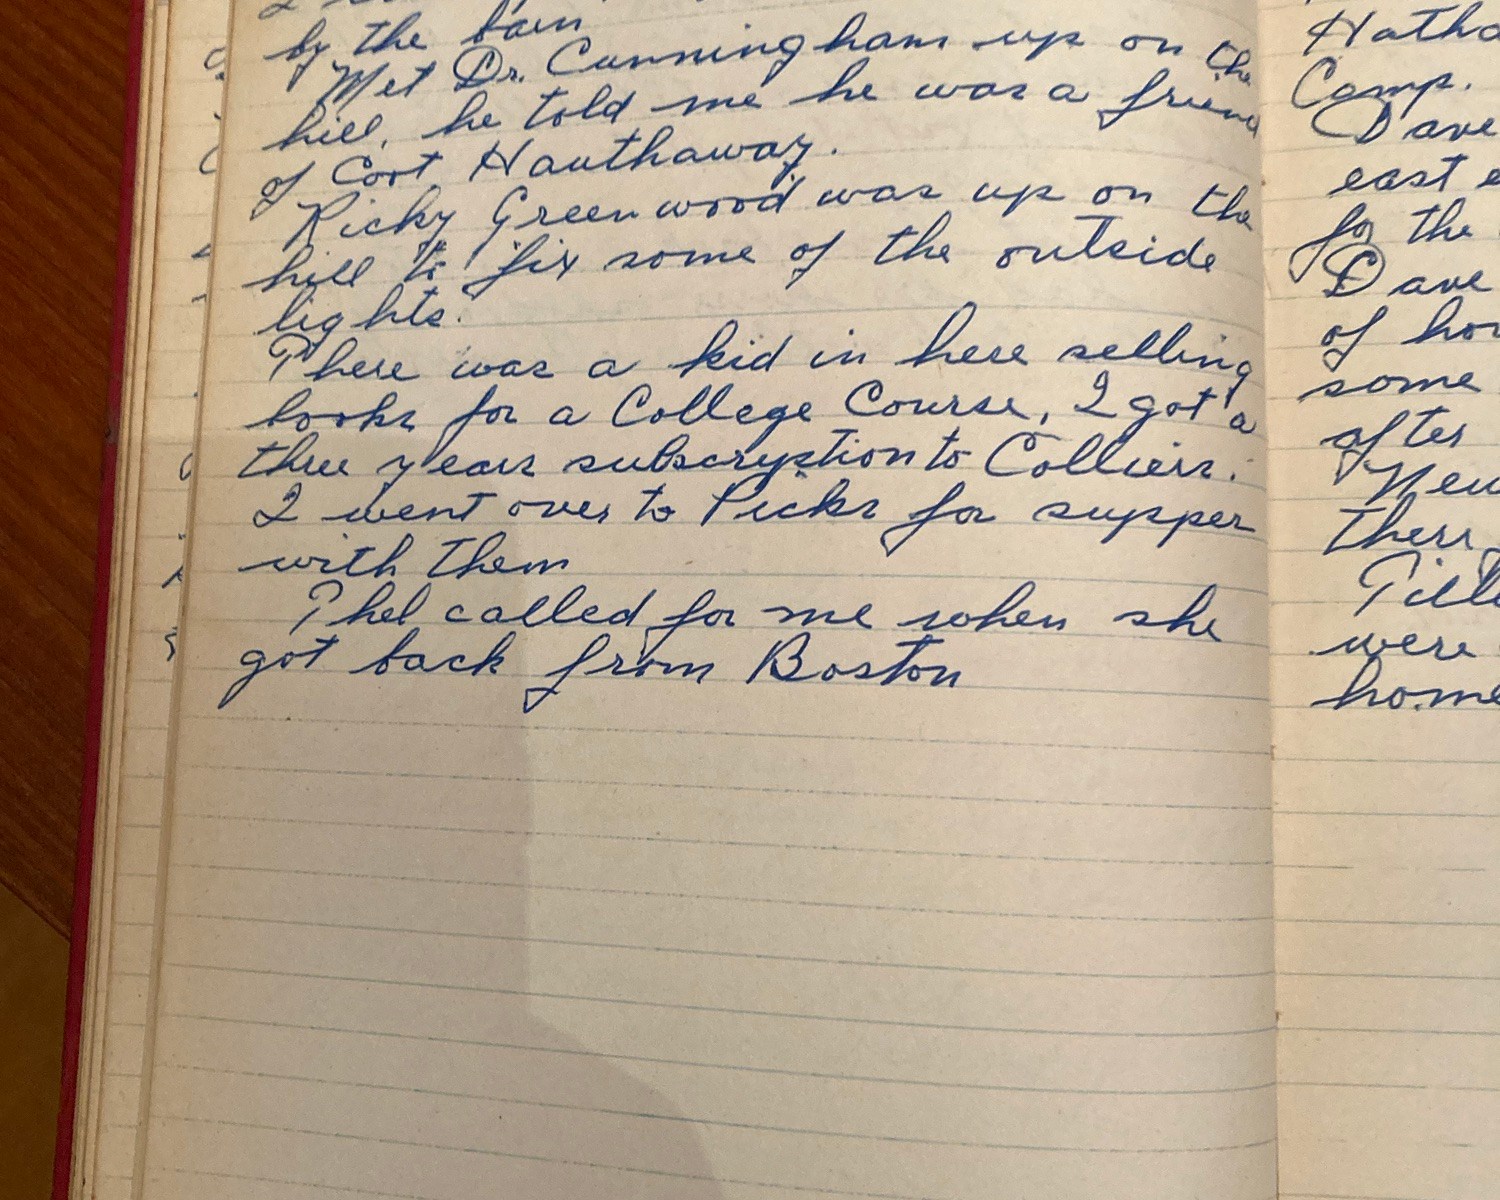 by the barn
Met Dr. Cunningham up on the
hill, he told me he was a friend
of Cort Hauthaway.
Ricky Greenwood was up on the
hill to fix some of the outside
lights.
There was a kid in here selling
books for a College Course, I got a
three years subscryption to Colliers.
I went over to Picks for supper
with them
Thel called for me when she
got back from Boston
Camp.
Dave
east
for the
Dave
of
some
after
were